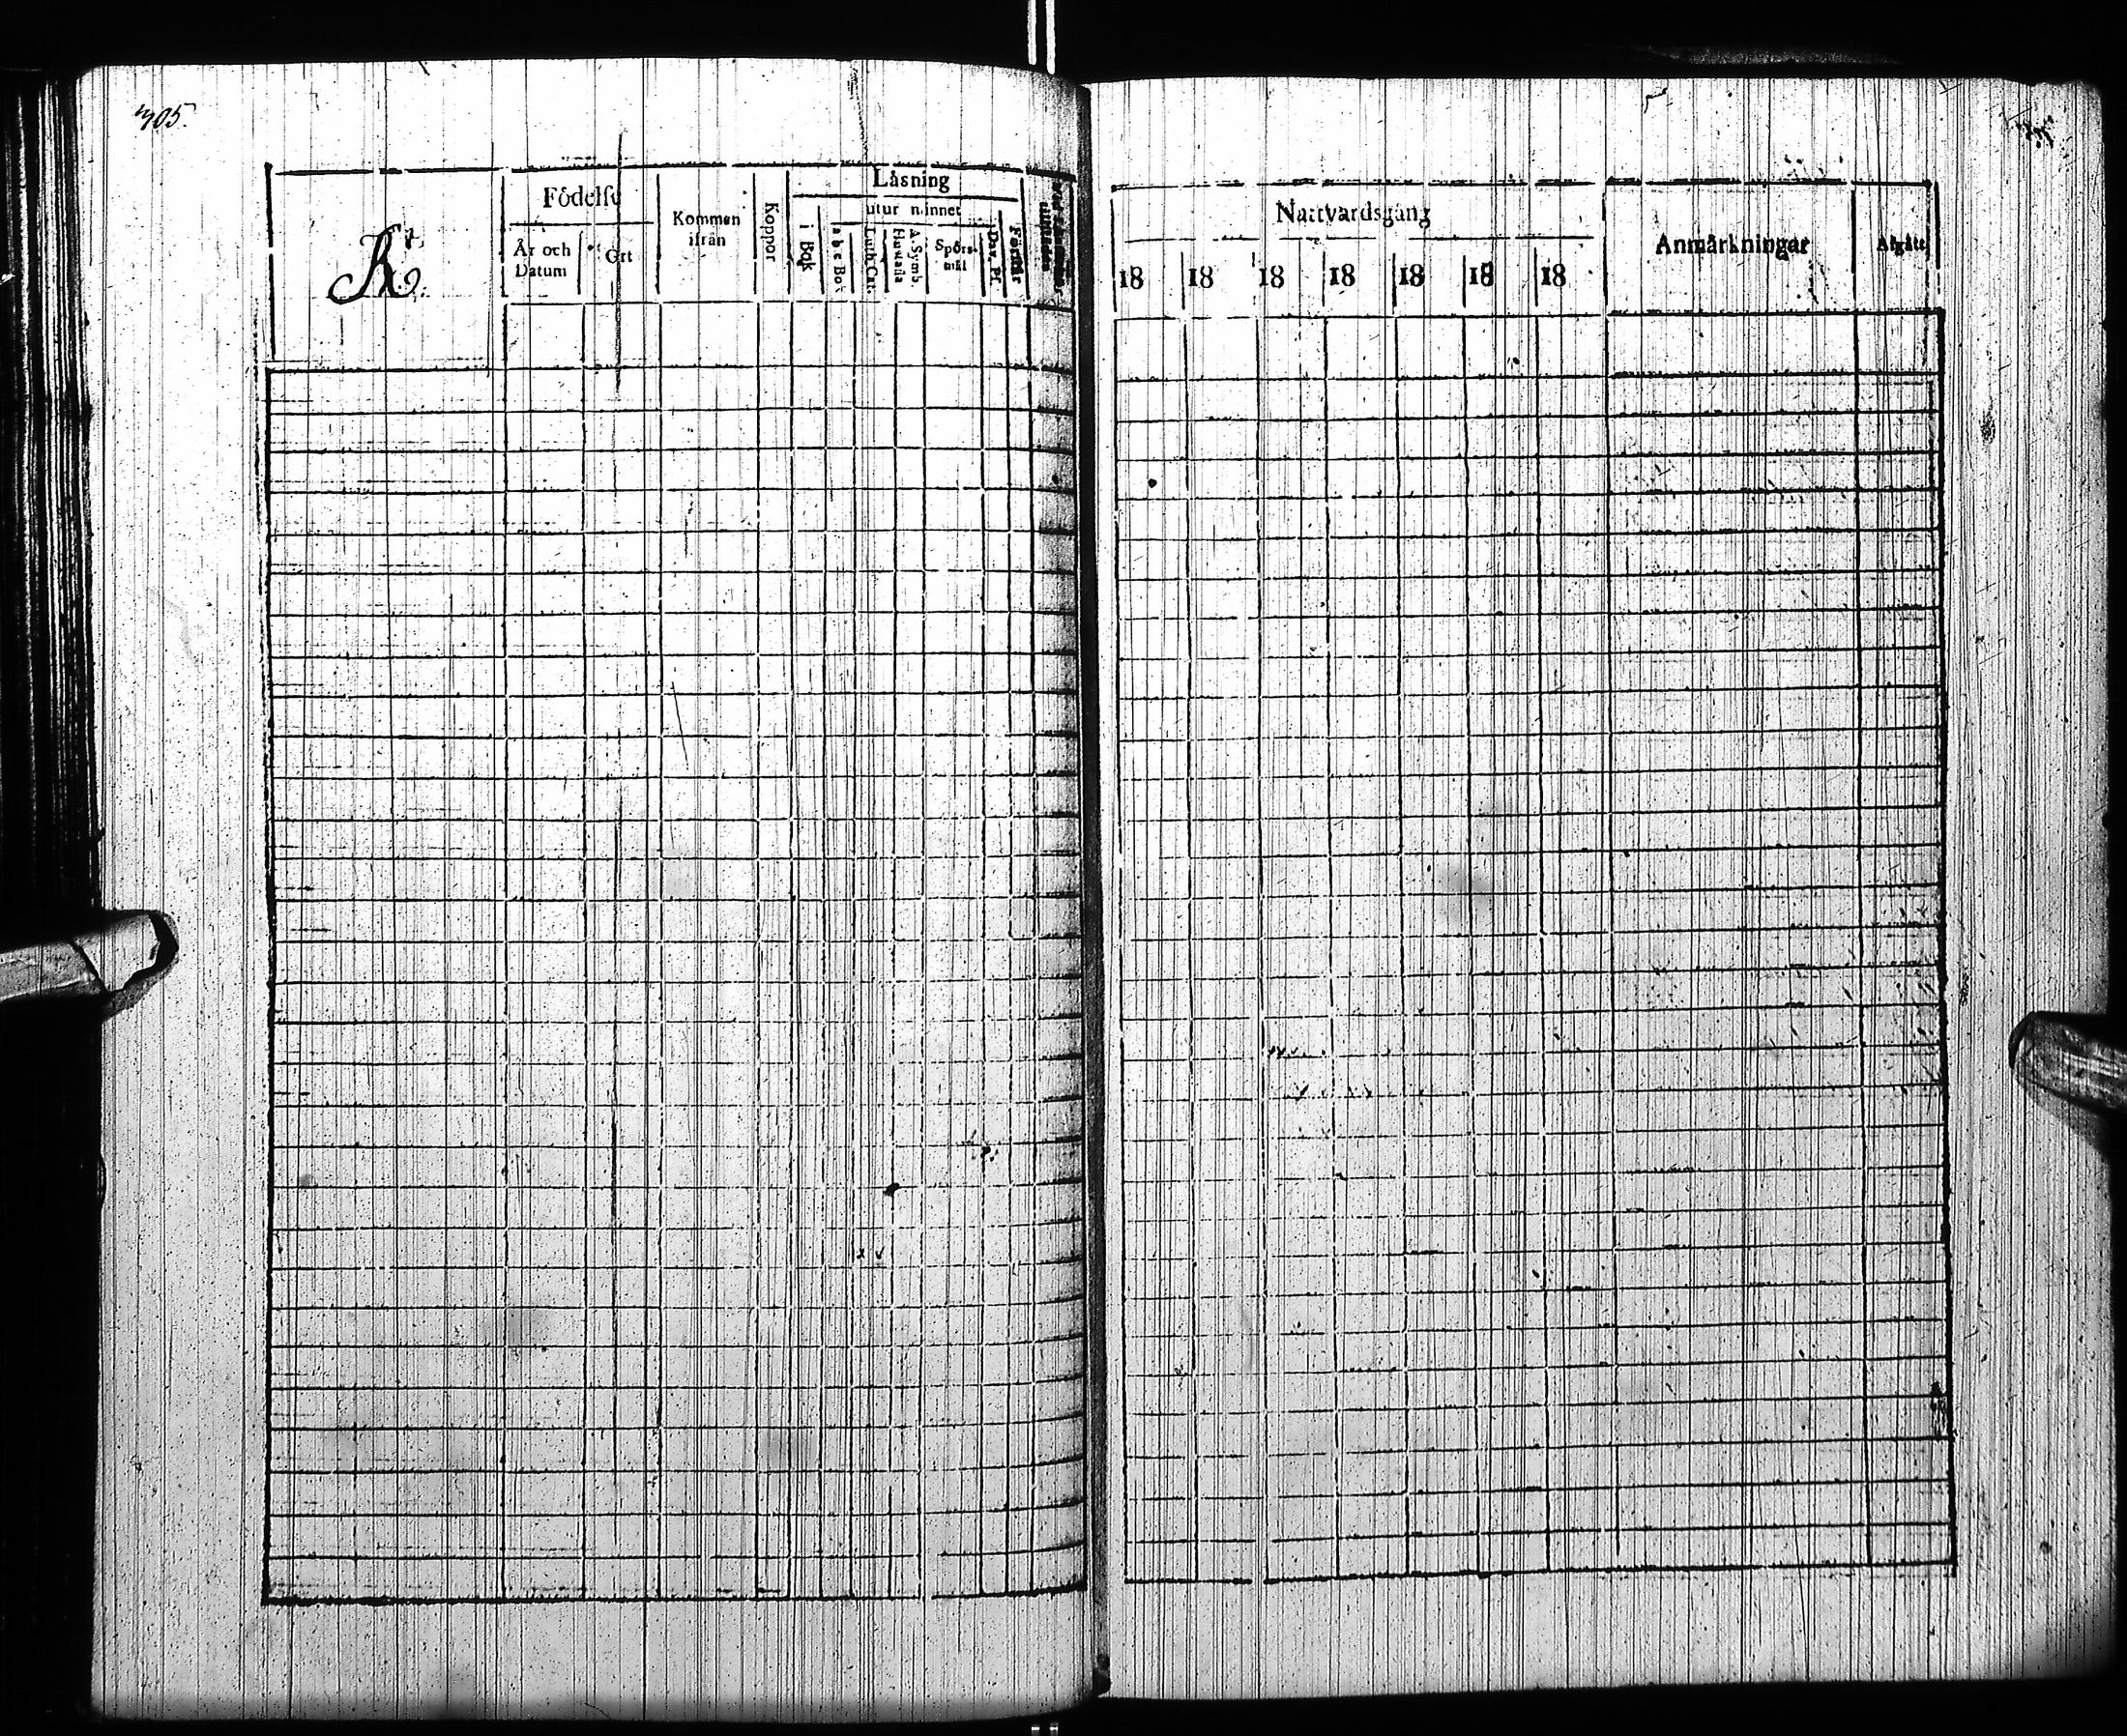 305.
R.
Födelse
År och Datum
Ort
Kommen ifrån
Koppor
Läsning
i Bok
utur minnet
Luth. Cat.
Hustafla
A. Symb.
Spörsmål
Dav. Ps.
Förhör
Nattvardsgång
18 18 18 18 18 18 18
Anmärkningar
Afgått